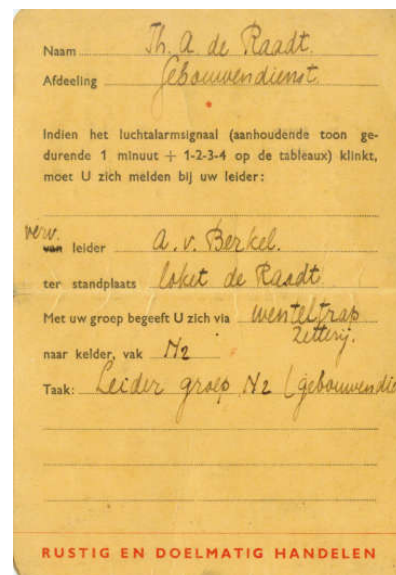 Naam Th. A. de Raadt.
Afdeeling Gebouwendienst.
Indien het luchtalarmsignaal (aanhoudende toon ge-
durende 1 minuut + 1-2-3-4 op de tableaux) klinkt,
moet U zich melden bij uw leider:
verv.
van leider A. v. Berkel.
ter standplaats loket de Raadt
Met uw groep begeeft U zich via wenteltrap
Zetterij.
naar kelder, vak N2
Taak: Leider groep N2 (gebouwendie
RUSTIG EN DOELMATIG HANDELEN